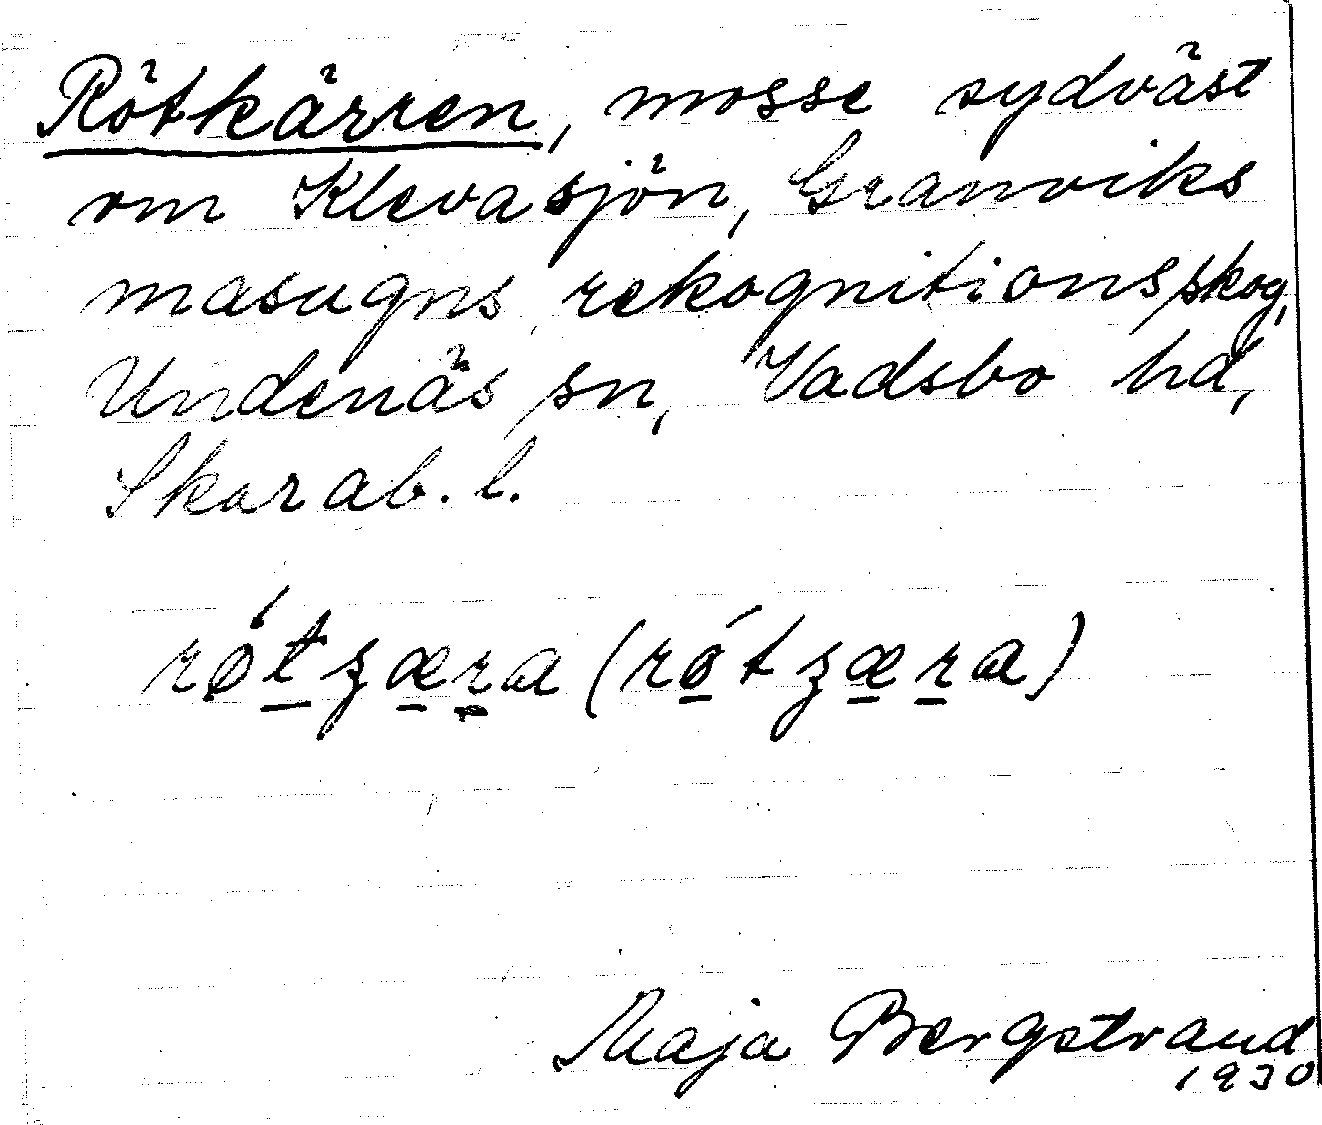 Rötkärren, mosse sydväst
om Klevasjön, Granviks
masugns rekognitionsskog,
Undenäs sn, Vadsbo hd,
Skarab. l.
rǿtʒæra (rǿtʒæra)
Maja Bergstrand
1930